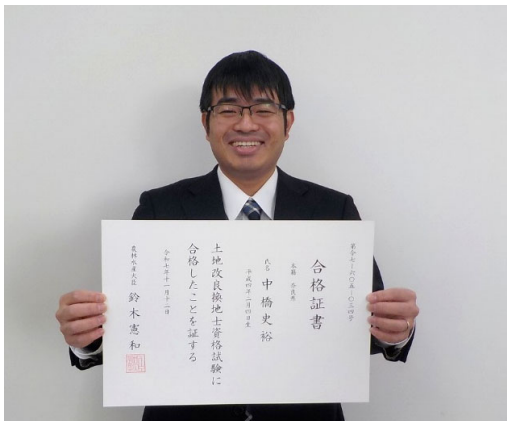 第令七-六〇五-〇三四号
合格証書
本籍 奈良県
氏名 中橋史裕
平成四年二月四日生
土地改良換地士資格試験に
合格したことを証する
令和七年十一月十二日
農林水産大臣 鈴木憲和